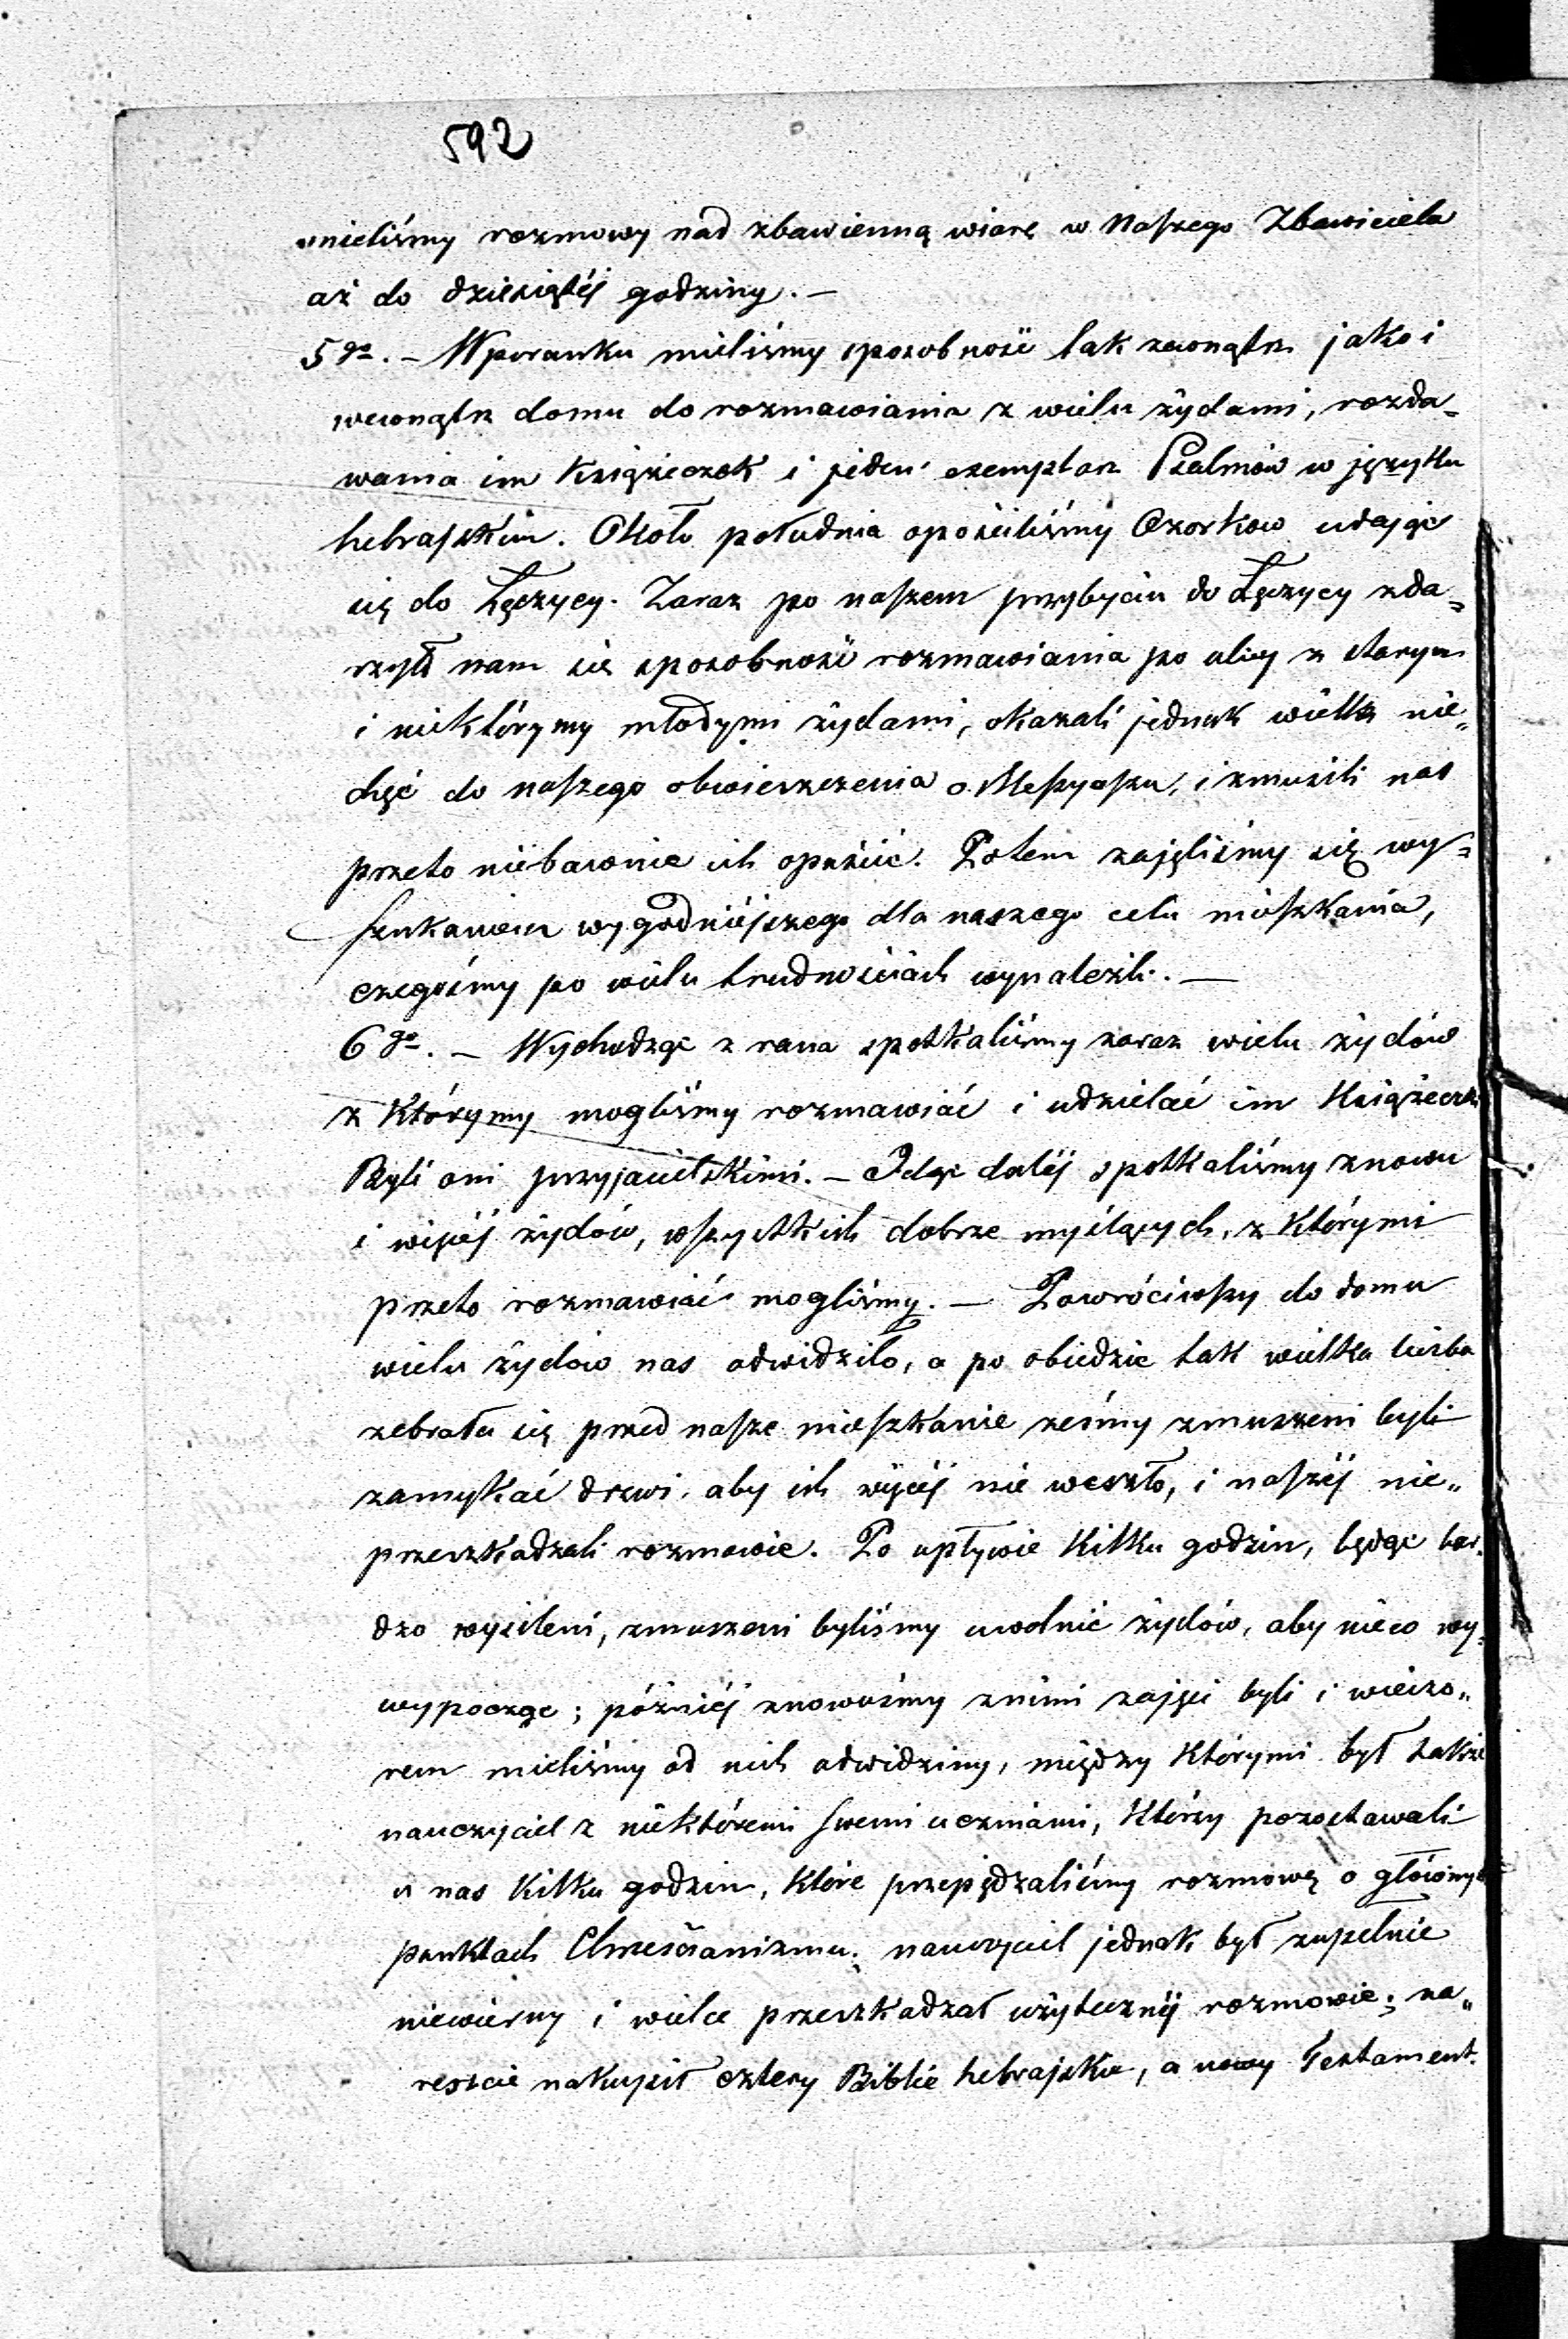 592
mieliśmy rozmowy nad zbawienną wiarę w Naszego Zbawiciela
aż do dziesiątéj godziny. —
5go. — W poranku mieliśmy sposobność tak zewnątrz jako i
wewnątrz domu do rozmawiania z wielu żydami, rozda=
wania im książeczek i jeden exemplarz Psalmów w języku
hebrajskim. Około południa opościliśmy Ozorkow udając
się do Łęczycy. Zaraz po naszem przybyciu do Łęczycy zda=
rzył nam się sposobność rozmawiania po ulicy z starym
i niektórymy młodymi żydami, okazali jednak wielką nie=
chęć do naszego obwieszczenia o Messyaszu, i zmusili nas
przeto niebawnie ich opuścić. Potem zajęliśmy się wy=
szukaniem wygodniejszego dla naszego celu mieszkania,
czegośmy po wielu trudnościach wynaleźli. —
6go. — Wychodząc z rana spotkaliśmy zaraz wielu żydów
z którymy mogliśmy rozmawiać i udzielać im książeczk
Byli oni przyjacielskimi. — Idąc daléj spotkaliśmy znowu
i więcéj żydów, wszystkich dobrze myślących, z którymi
przeto rozmawiać mogliśmy. — Powróciwszy do domu
wielu żydów nas odwidziło, a po obiedzie tak wielka liczba
zebrała się przed nasze mieszkanie żeśmy zmuszeni byli
zamykać drzwi, aby ich więcéj nie weszło, i naszéj nie„
przeszkadzali rozmowie. Po upływie kilku godzin, będąc bar„
dzo wysileni, zmuszeni byliśmy uwolnić żydów, aby nieco wy=
wypocząc; późniéj znowuśmy z nimi zajęci byli i wieczo„
rem mieliśmy od nich odwidziny, między którymi był także
nauczyciel z niektóremi swemi uczniami, którzy pozostawali
u nas kilku godzin, które przepędzaliśmy rozmowę o głównych
punktach Chrześcianizmu; nauczyciel jednak był zupełnie
niewierny i wielce przeszkadzał użytecznéj rozmowie; na„
reszcie nakupił cztery Biblie hebrajskie, a nowy Testament.